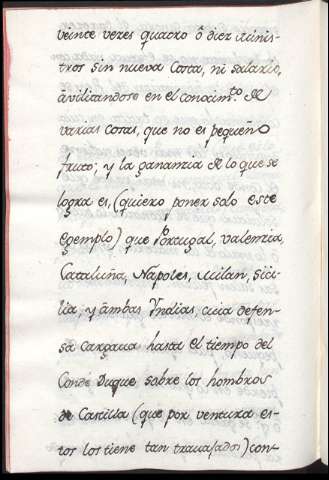 veinte veces quatro ô diez minis-
tros sin nueva costa, ni salario,
âvilitandose en el conocim.to de
varias cosas, que no es pequeño
fruto; y la ganancia de lo que se
logra es, (quiero poner solo este
egemplo) que Portugal, valencia,
Cataluña, Nápoles, Milan, sici-
lia, y âmbas Yndias, cuia defen-
sa cargaua hasta el tiempo del
Conde Duque sobre los hombros
de Castilla (que por ventura es-
tos los tiene tan trauajados) con-